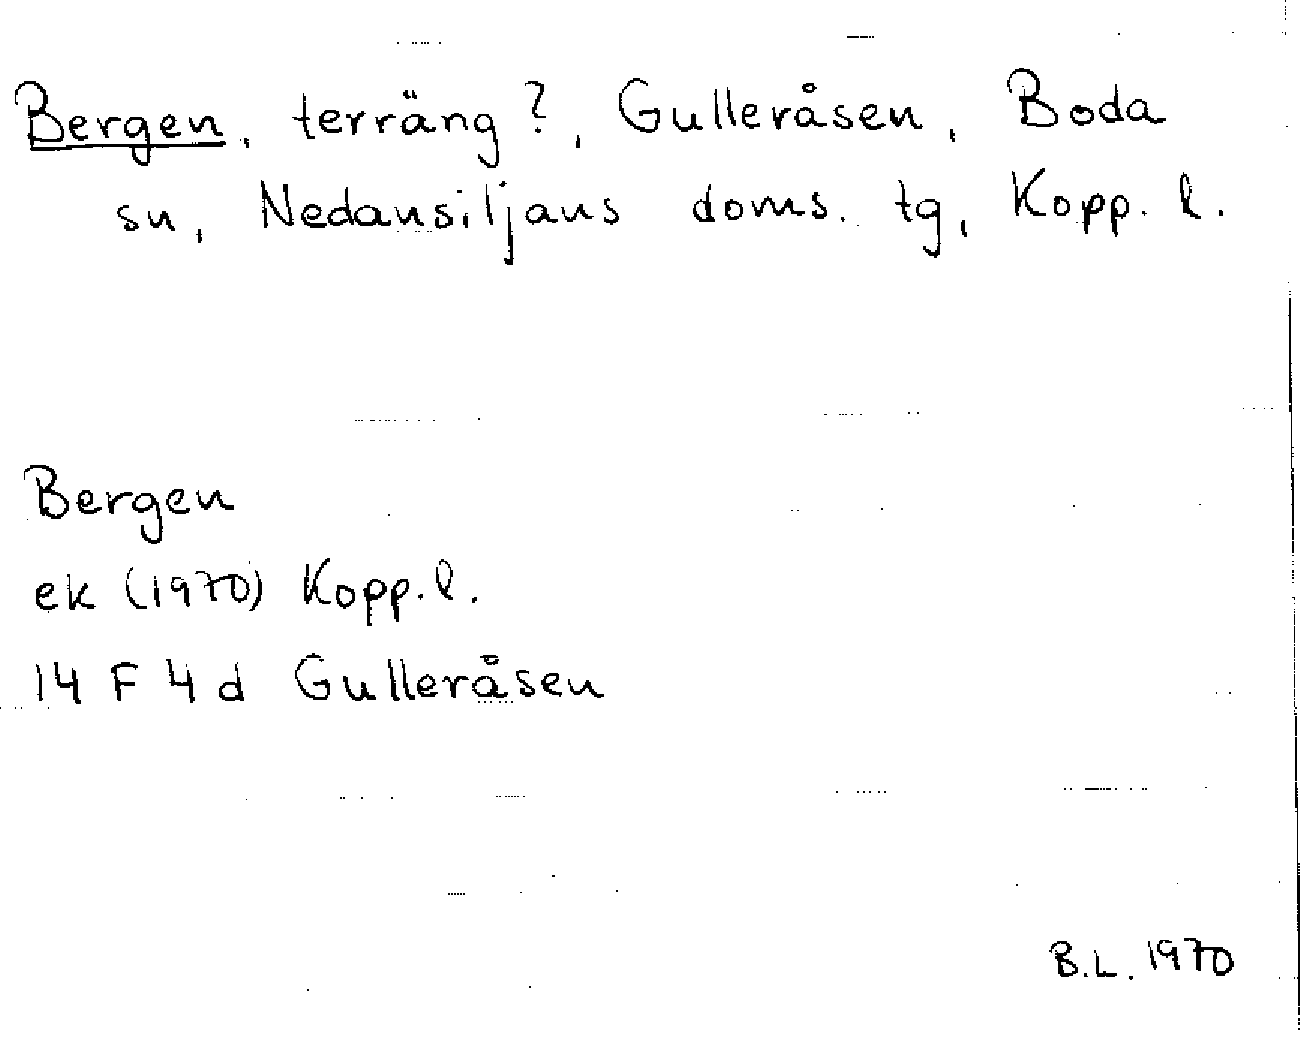 Bergen, terräng?, Gulleråsen, Boda
sn, Nedansiljans doms. tg, Kopp. l.
Bergen
ek (1970) Kopp. l.
14 F 4 d Gulleråsen
B.L. 1970